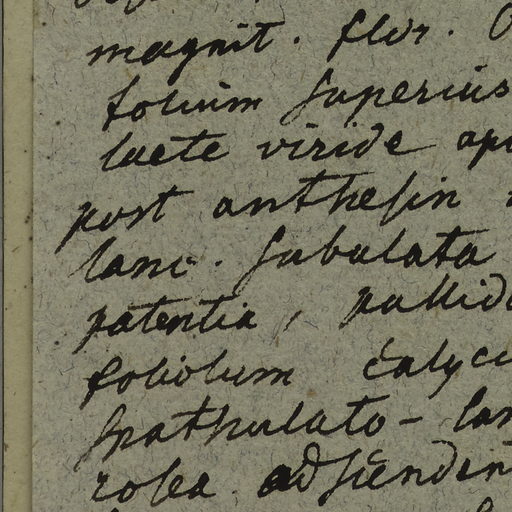 magnit. flor.
folium superius
laete viride
post anthesin
lanc. subulata
patentia, pallid
foliolum calyci
spathulato-lan
rosea adscendent